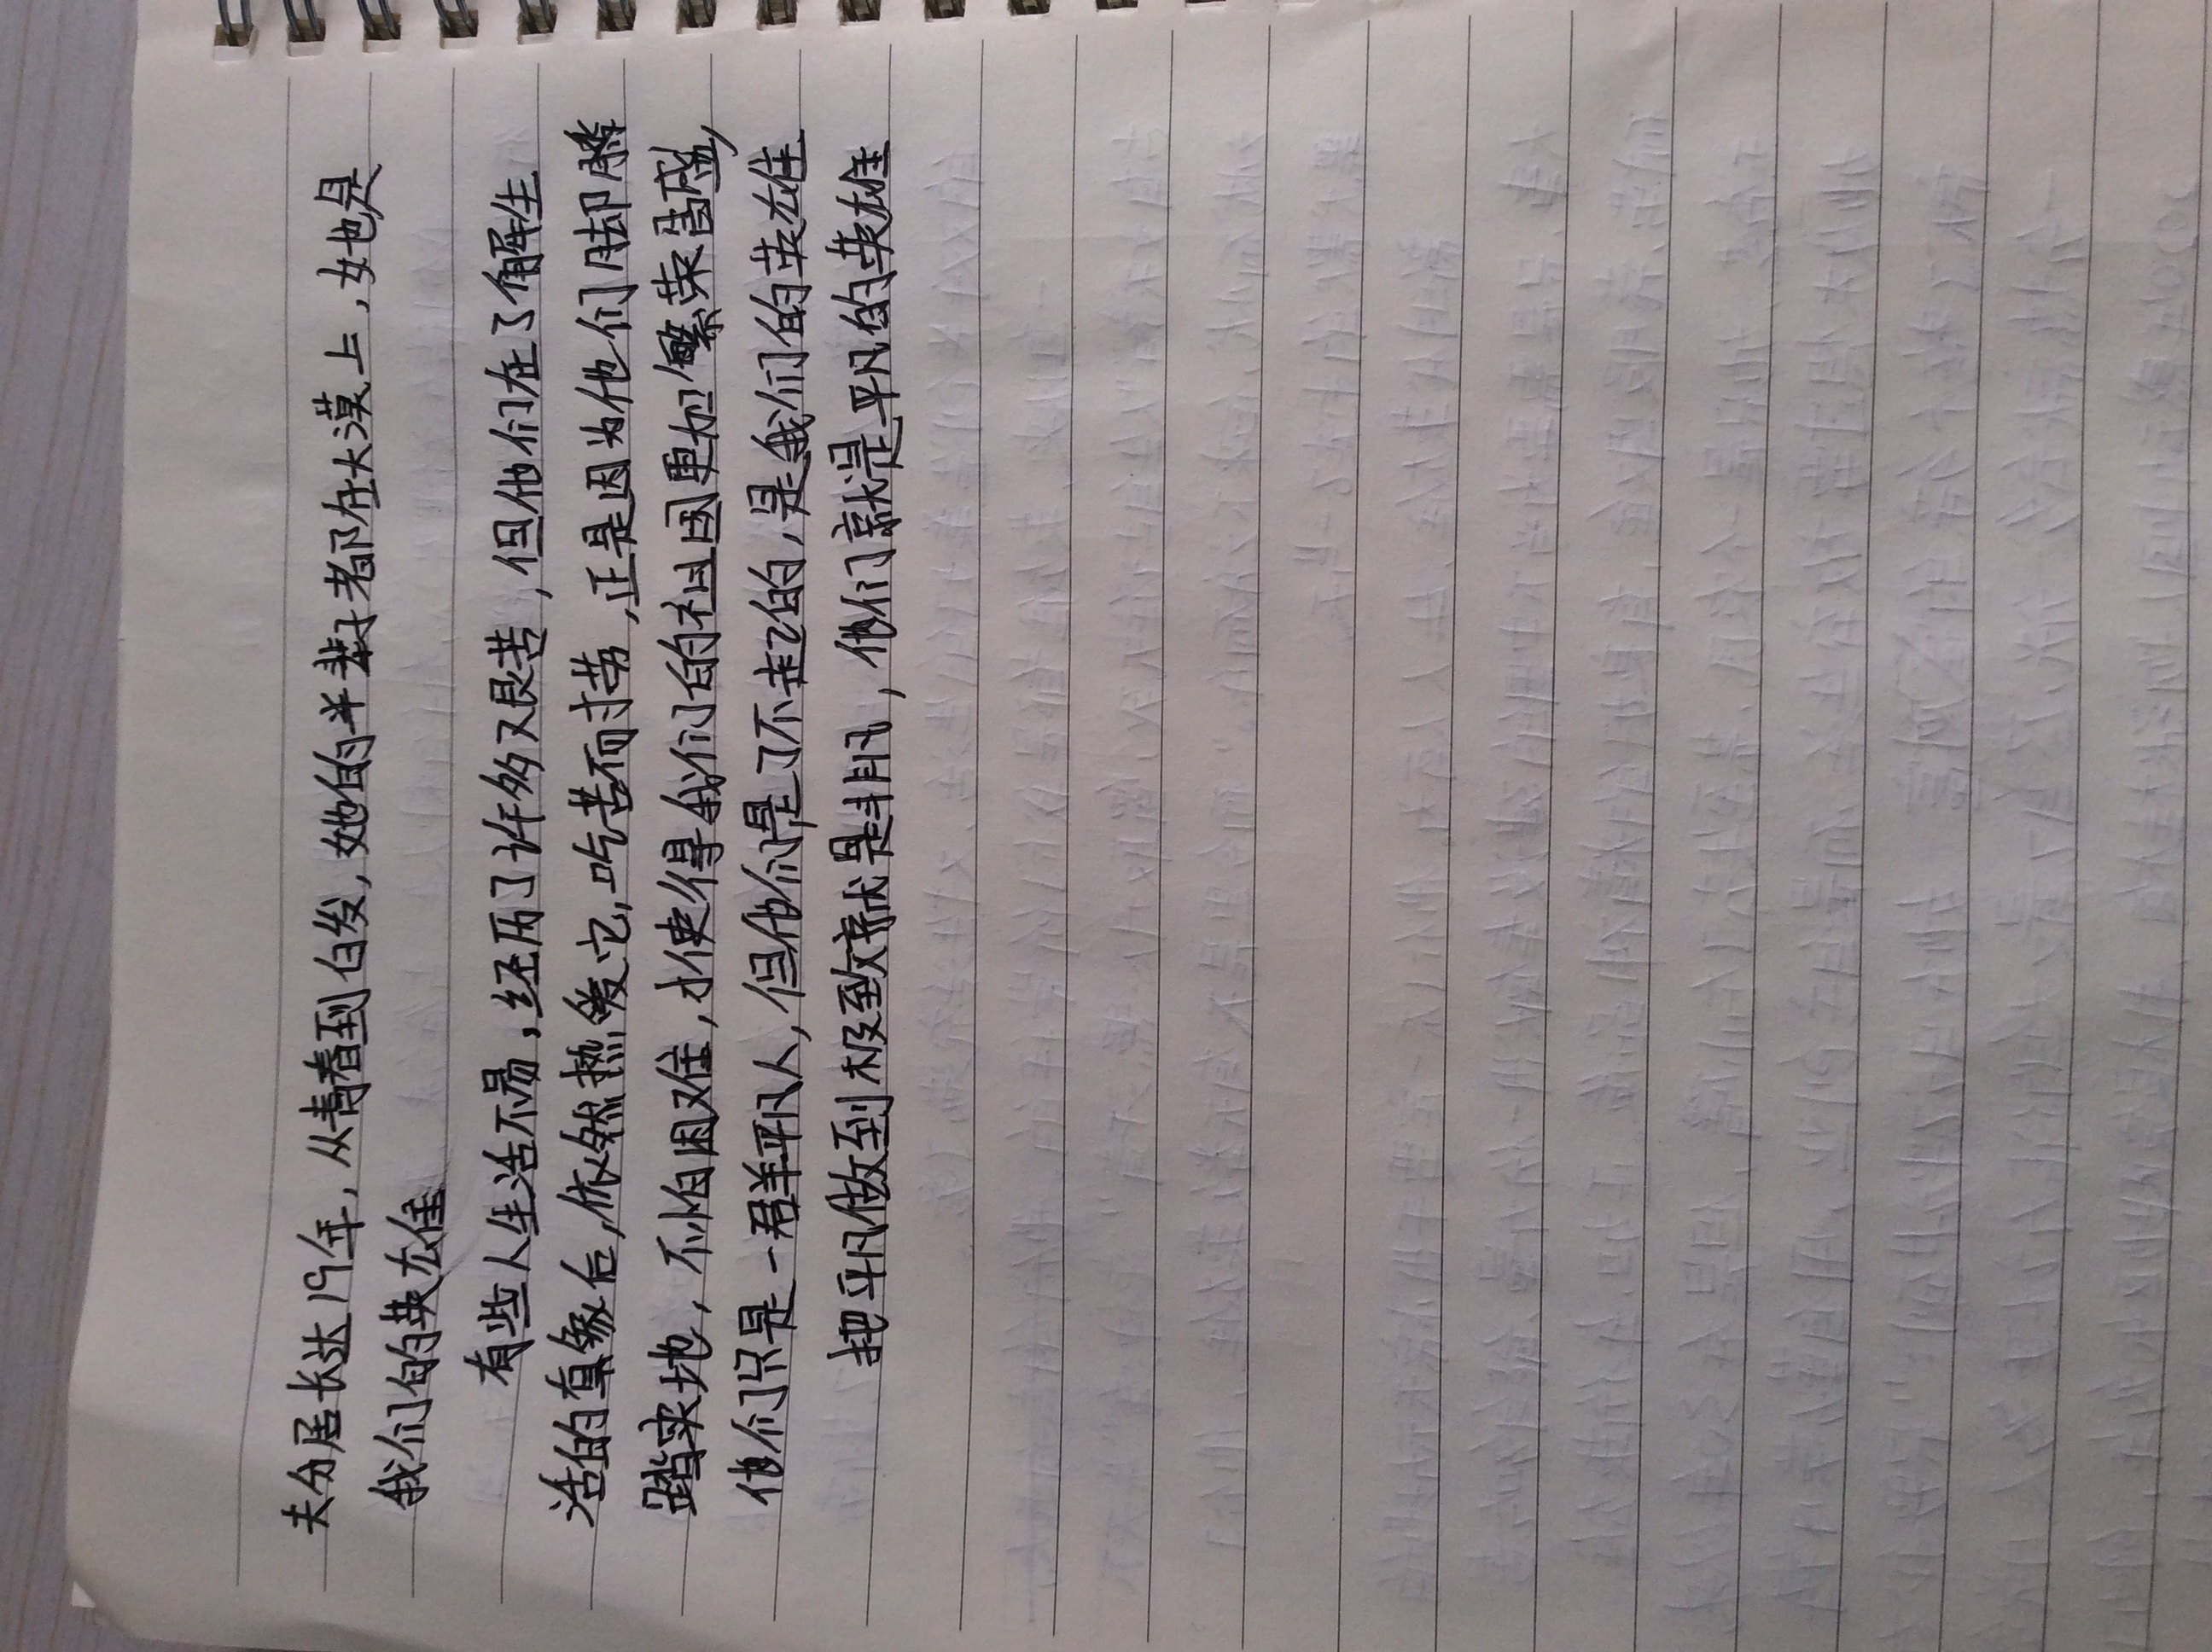 夫分居长达19年，从青春到白发，她的半辈子都在大漠上，她是
我们的英雄
有些人生活不易，经历了许多艰苦，但他们在了解生
活的真象后，依然热爱它，吃苦而耐劳，正是因为他们脚
踏实地，不怕困难，才使得我们的祖国更加繁荣昌盛，
他们只是一群平凡人，但他们是了不起的，是我们的英雄
把平凡做到极致就是非凡，他们就是平凡的英雄